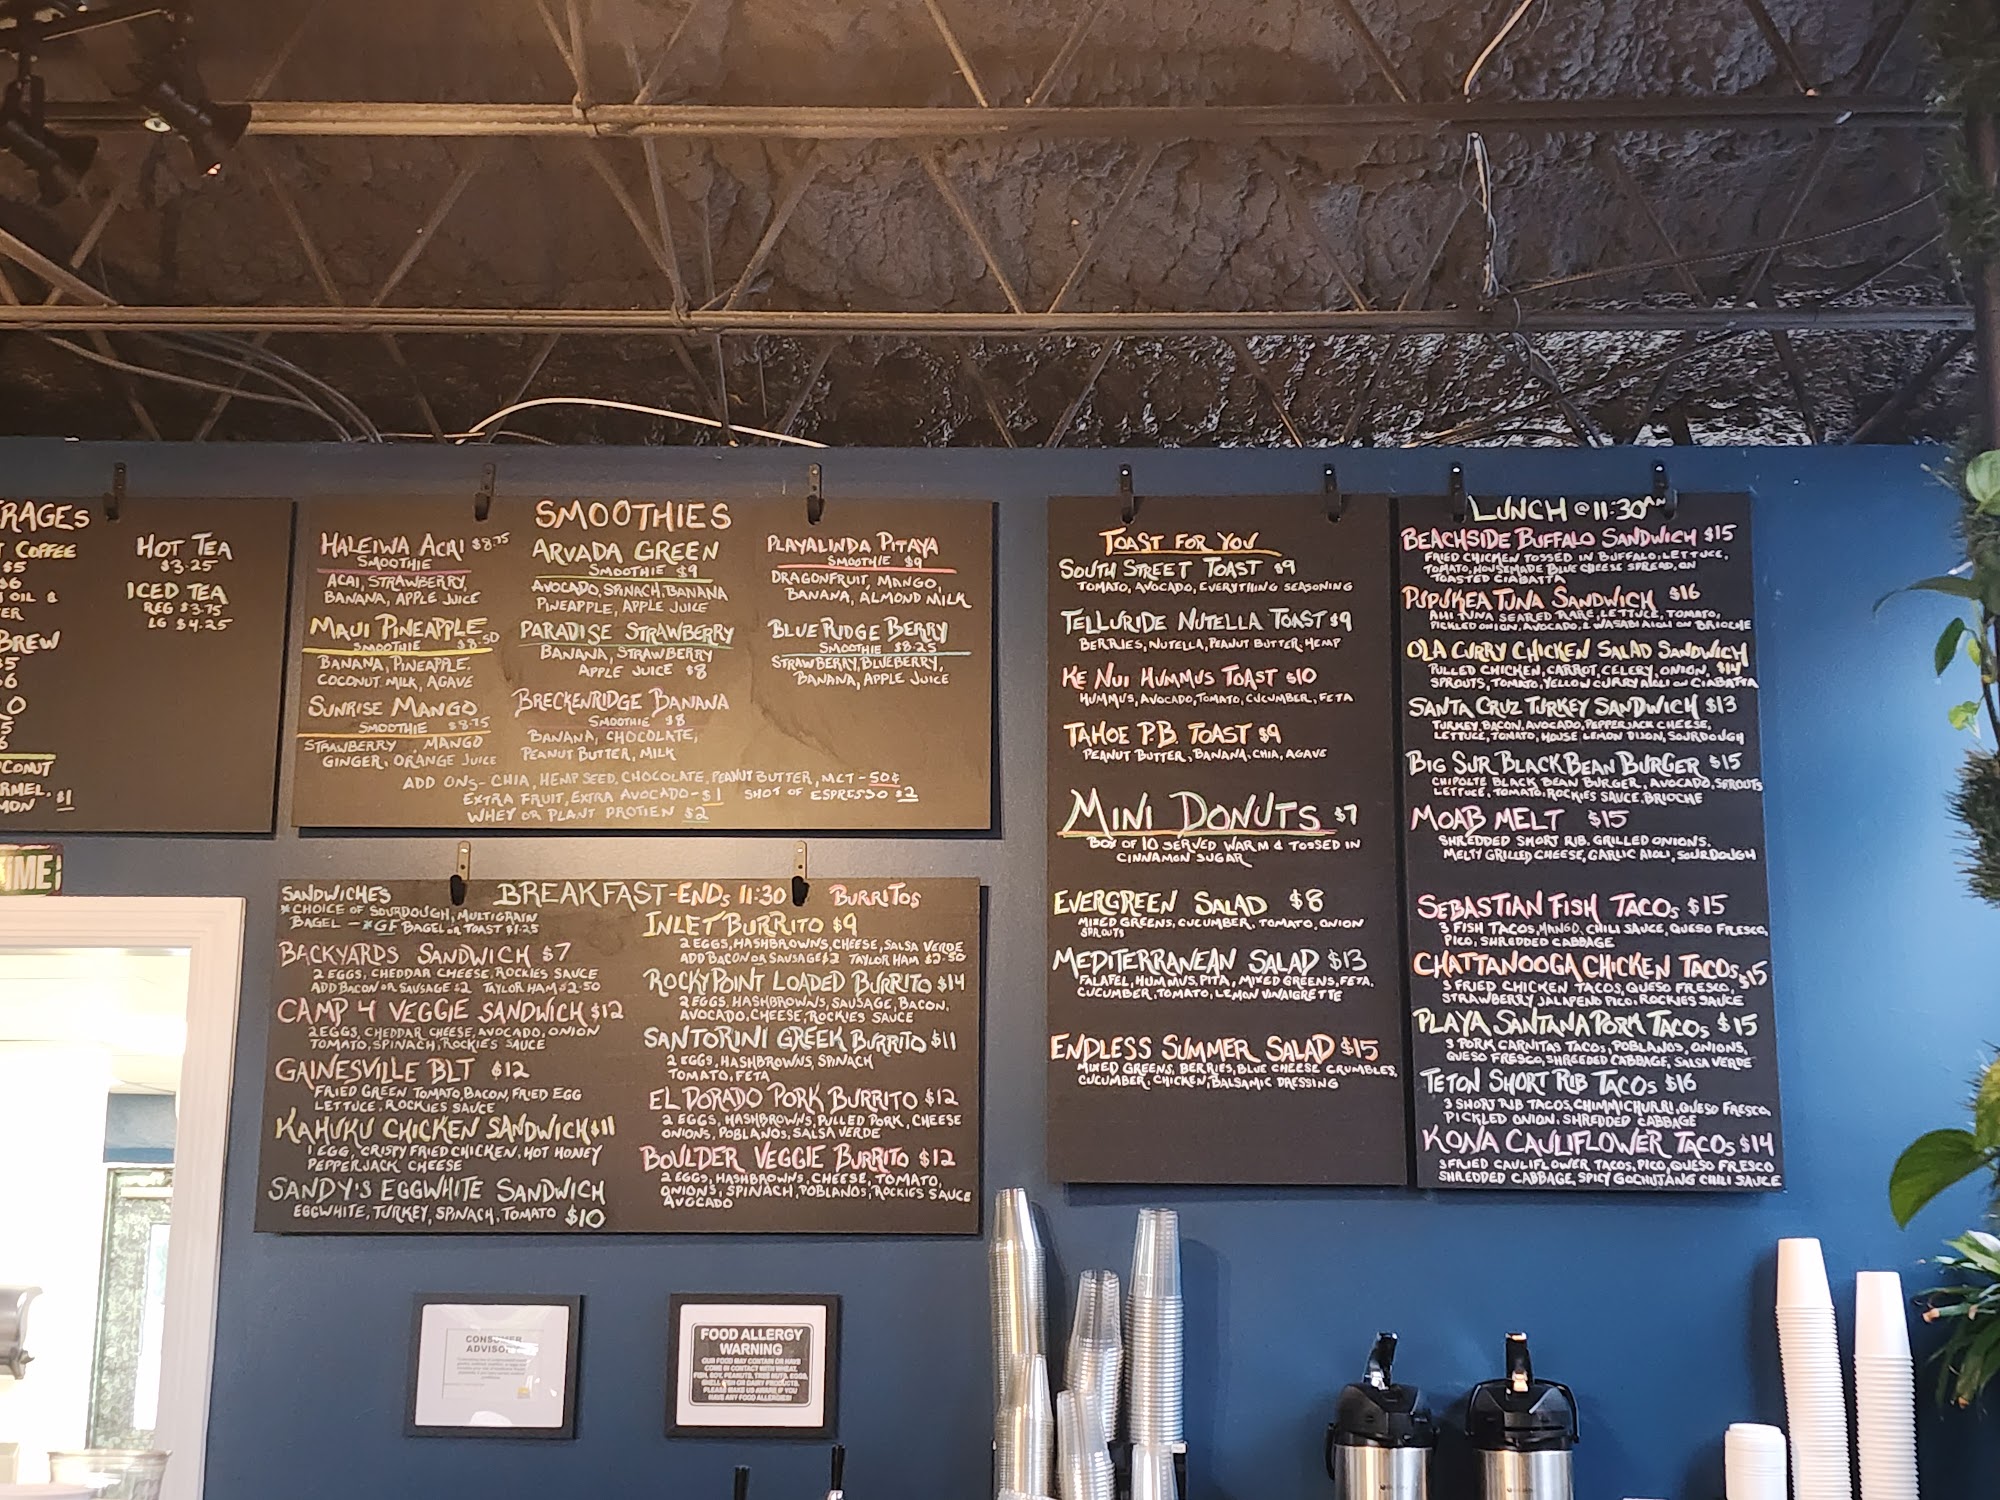 RAGES
COFFEE
$5
$6
OIL &
ER
BREW
5
6
O
5
6
CONUT
RMEL,
MON $1
HOT TEA
$3.25
ICED TEA
REG $3.75
LG $4.25
IME!
SMOOTHIES
HALEIWA ACAI $8.75
SMOOTHIE
ACAI, STRAWBERRY,
BANANA, APPLE JUICE
MAUI PINEAPPLE
SMOOTHIE $8.50
BANANA, PINEAPPLE,
COCONUT MILK, AGAVE
SUNRISE MANGO
SMOOTHIE $8.75
STRAWBERRY, MANGO
GINGER, ORANGE JUICE
ARVADA GREEN
SMOOTHIE $9
AVOCADO, SPINACH, BANANA
PINEAPPLE, APPLE JUICE
PARADISE STRAWBERRY
BANANA, STRAWBERRY
APPLE JUICE $8
BRECKENRIDGE BANANA
SMOOTHIE $8
BANANA, CHOCOLATE,
PEANUT BUTTER, MILK
PLAYALINDA PITAYA
SMOOTHIE $9
DRAGONFRUIT, MANGO,
BANANA, ALMOND MILK
BLUE RIDGE BERRY
SMOOTHIE $8.25
STRAWBERRY, BLUEBERRY,
BANANA, APPLE JUICE
ADD ONS- CHIA, HEMP SEED, CHOCOLATE, PEANUT BUTTER, MCT - 50¢
EXTRA FRUIT, EXTRA AVOCADO - $1 SHOT OF ESPRESSO $2
WHEY OR PLANT PROTIEN $2
BREAKFAST-ENDS 11:30
SANDWICHES
*CHOICE OF SOURDOUGH, MULTIGRAIN
BAGEL - *GF BAGEL OR TOAST $1.25
BACKYARDS SANDWICH $7
2 EGGS, CHEDDAR CHEESE, ROCKIES SAUCE
ADD BACON OR SAUSAGE $2 TAYLOR HAM $2.50
CAMP 4 VEGGIE SANDWICH $12
2 EGGS, CHEDDAR CHEESE, AVOCADO, ONION
TOMATO, SPINACH, ROCKIES SAUCE
GAINESVILLE BLT $12
FRIED GREEN TOMATO, BACON, FRIED EGG
LETTUCE, ROCKIES SAUCE
KAHUKU CHICKEN SANDWICH $11
1 EGG, CRISPY FRIED CHICKEN, HOT HONEY
PEPPERJACK CHEESE
SANDY'S EGGWHITE SANDWICH
EGGWHITE, TURKEY, SPINACH, TOMATO $10
BURRITOS
INLET BURRITO $9
2 EGGS, HASHBROWNS, CHEESE, SALSA VERDE
ADD BACON OR SAUSAGE $2 TAYLOR HAM $2.50
ROCKY POINT LOADED BURRITO $14
2 EGGS, HASHBROWNS, SAUSAGE, BACON,
AVOCADO, CHEESE, ROCKIES SAUCE
SANTORINI GREEK BURRITO $11
2 EGGS, HASHBROWNS, SPINACH
TOMATO, FETA
EL DORADO PORK BURRITO $12
2 EGGS, HASHBROWNS, PULLED PORK, CHEESE
ONIONS, POBLANOS, SALSA VERDE
BOULDER VEGGIE BURRITO $12
2 EGGS, HASHBROWNS, CHEESE, TOMATO,
ONIONS, SPINACH, POBLANOS, ROCKIES SAUCE
AVOCADO
TOAST FOR YOU
SOUTH STREET TOAST $9
TOMATO, AVOCADO, EVERYTHING SEASONING
TELLURIDE NUTELLA TOAST $9
BERRIES, NUTELLA, PEANUT BUTTER, HEMP
KE NUI HUMMUS TOAST $10
HUMMUS, AVOCADO, TOMATO, CUCUMBER, FETA
TAHOE P.B. TOAST $9
PEANUT BUTTER, BANANA, CHIA, AGAVE
MINI DONUTS $7
BOX OF 10 SERVED WARM & TOSSED IN
CINNAMON SUGAR
EVERGREEN SALAD $8
MIXED GREENS, CUCUMBER, TOMATO, ONION
SPROUTS
MEDITERRANEAN SALAD $13
FALAFEL, HUMMUS, PITA, MIXED GREENS, FETA,
CUCUMBER, TOMATO, LEMON VINAIGRETTE
ENDLESS SUMMER SALAD $15
MIXED GREENS, BERRIES, BLUE CHEESE CRUMBLES,
CUCUMBER, CHICKEN, BALSAMIC DRESSING
LUNCH @ 11:30AM
BEACHSIDE BUFFALO SANDWICH $15
FRIED CHICKEN TOSSED IN BUFFALO, LETTUCE,
TOMATO, HOUSEMADE BLUE CHEESE SPREAD, ON
TOASTED CIABATTA
PUPUKEA TUNA SANDWICH $16
AHI TUNA SEARED RARE, LETTUCE, TOMATO,
PICKLED ONION, AVOCADO, & WASABI AIOLI ON BRIOCHE
OLA CURRY CHICKEN SALAD SANDWICH
PULLED CHICKEN, CARROT, CELERY, ONION, $14
SPROUTS, TOMATO, YELLOW CURRY AIOLI ON CIABATTA
SANTA CRUZ TURKEY SANDWICH $13
TURKEY, BACON, AVOCADO, PEPPERJACK CHEESE,
LETTUCE, TOMATO, HOUSE LEMON DIJON, SOURDOUGH
BIG SUR BLACK BEAN BURGER $15
CHIPOLTE BLACK BEAN BURGER, AVOCADO, SPROUTS
LETTUCE, TOMATO, ROCKIES SAUCE, BRIOCHE
MOAB MELT $15
SHREDDED SHORT RIB, GRILLED ONIONS,
MELTY GRILLED CHEESE, GARLIC AIOLI, SOURDOUGH
SEBASTIAN FISH TACOS $15
3 FISH TACOS, MANGO, CHILI SAUCE, QUESO FRESCO,
PICO, SHREDDED CABBAGE
CHATTANOOGA CHICKEN TACOS $15
3 FRIED CHICKEN TACOS, QUESO FRESCO,
STRAWBERRY JALAPENO PICO, ROCKIES SAUCE
PLAYA SANTANA PORK TACOS $15
3 PORK CARNITAS TACOS, POBLANOS, ONIONS,
QUESO FRESCO, SHREEDED CABBAGE, SALSA VERDE
TETON SHORT RIB TACOS $16
3 SHORT RIB TACOS, CHIMMICHURRI, QUESO FRESCO,
PICKLED ONION, SHREDDED CABBAGE
KONA CAULIFLOWER TACOS $14
3 FRIED CAULIFLOWER TACOS, PICO, QUESO FRESCO
SHREDDED CABBAGE, SPICY GOCHUJANG CHILI SAUCE
CONSUMER
ADVISO
FOOD ALLERGY
WARNING
OUR FOOD MAY CONTAIN OR HAVE
COME IN CONTACT WITH WHEAT,
FISH, SOY, PEANUTS, TREE NUTS, EGGS,
SHELLFISH OR DAIRY PRODUCTS.
PLEASE MAKE US AWARE IF YOU
HAVE ANY FOOD ALLERGIES!